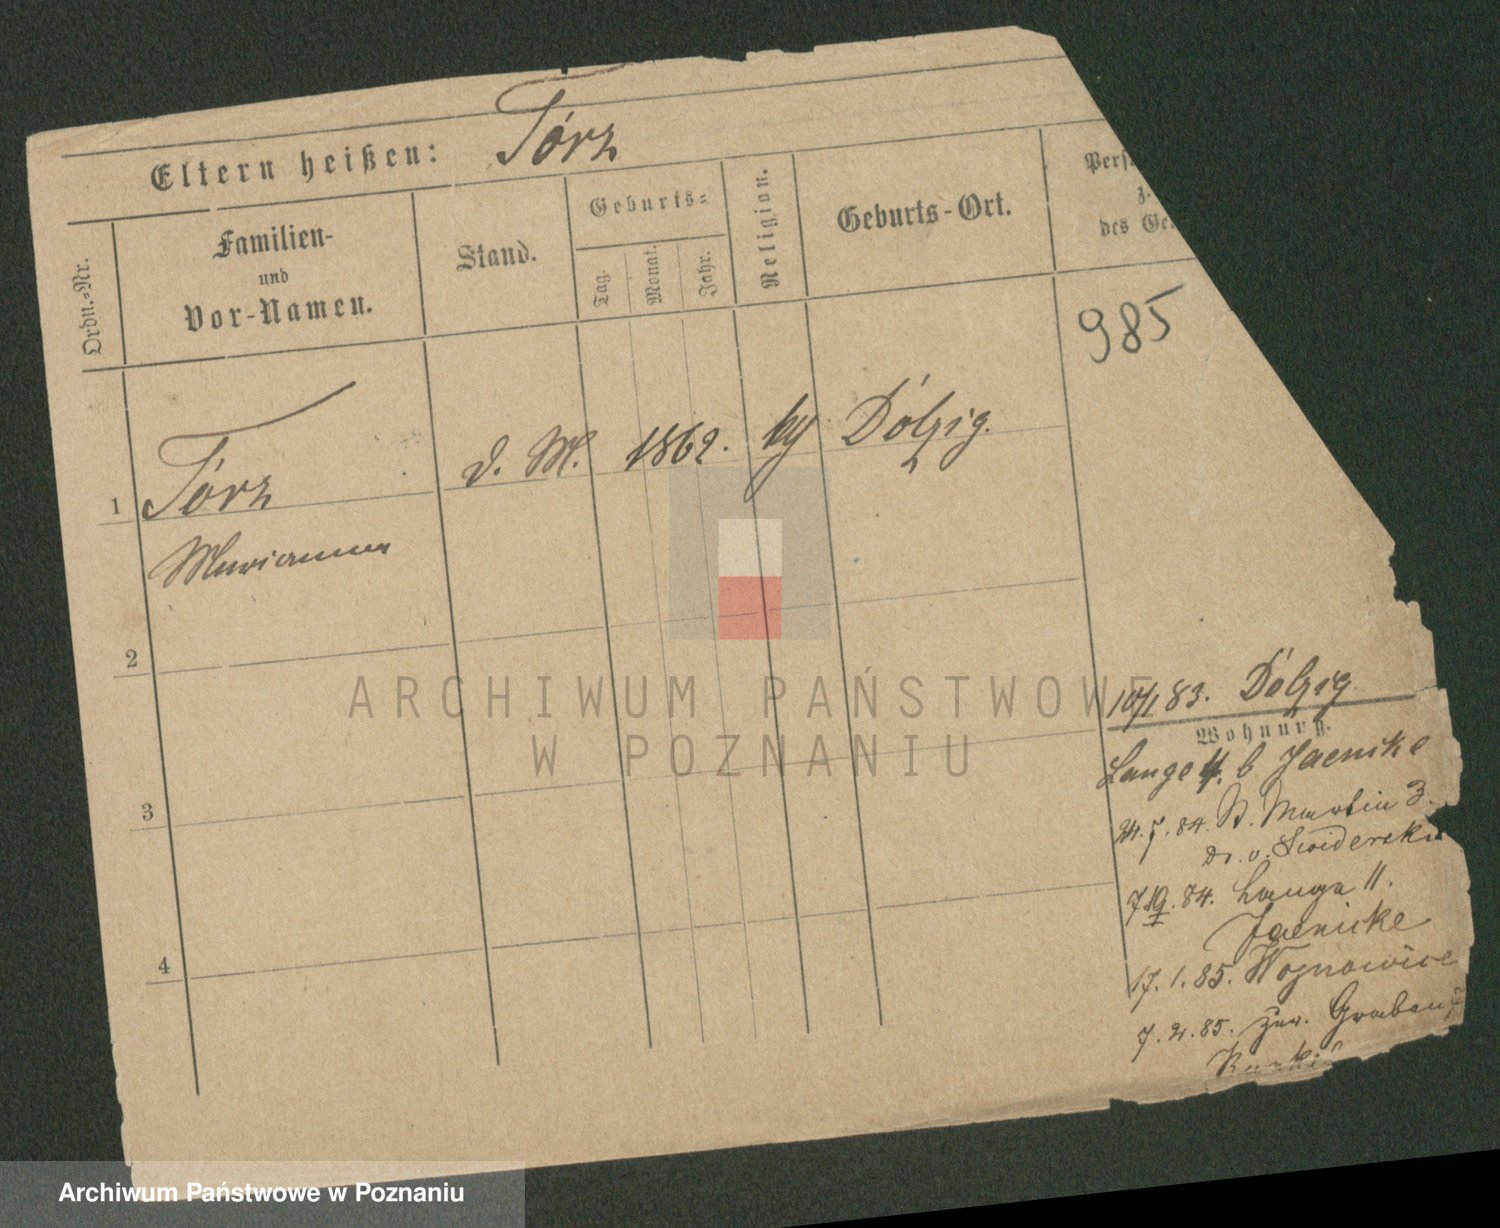 Eltern heißen: Tórz
Ordn.=Nr.
Familien-
und
Vor-Namen.
Stand.
Geburts=
Tag.
Monat.
Jahr.
Religion.
Geburts-Ort.
Pers
z.
des Ge
985
1 Tórz d. M. 1862. kg Dólzig.
Marianna
2
3
4
10/1 83. Dólzig.
Wohnung.
Lange 4. b Jaenike
24.7.84. St. Martin 3.
Dr. v. Swiderska
84. Lange 11.
Jaenicke
17.1.85. Wognowice
7.2.85. Graben 7
ARCHIWUM PAŃSTWOWE
W POZNANIU
Archiwum Państwowe w Poznaniu